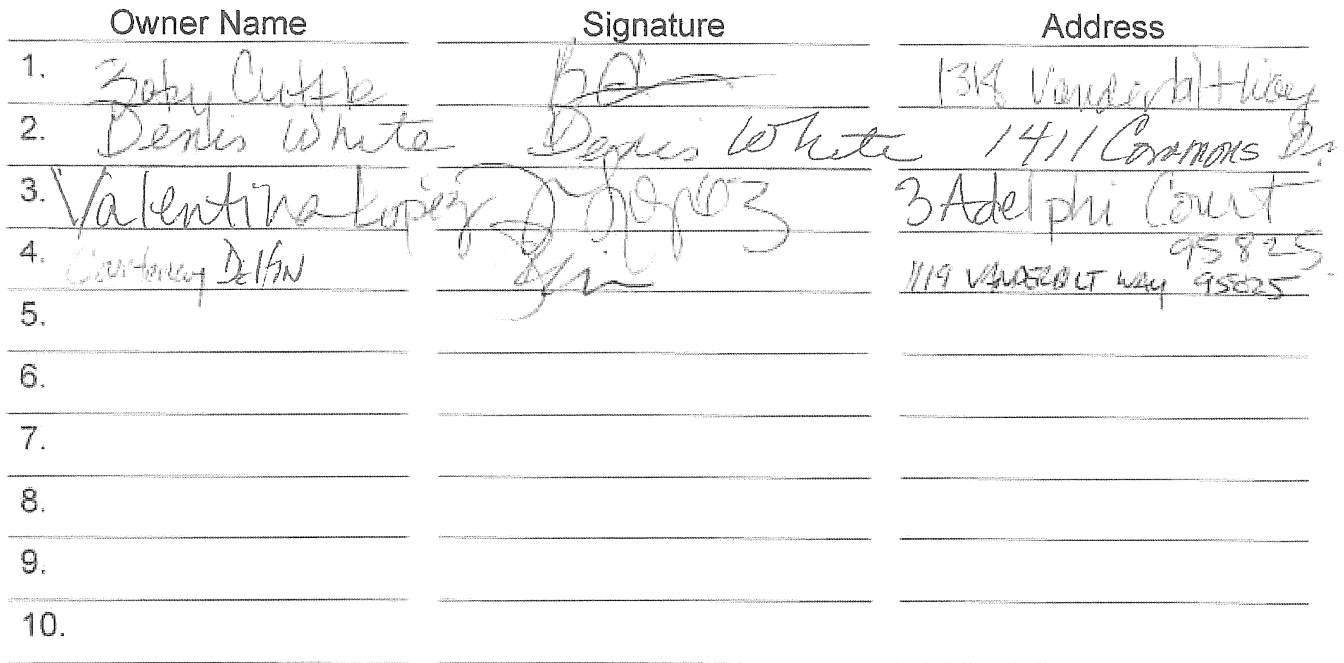 Owner Name Signature Address
1. Cuttle Vanderbilt Way
2. Denis White Denis White 1411 Commons Dr.
3. Valentina Lopez Lopez 3 Adelphi Court
95825
4. Courtenay Delfin 1119 VANDERBILT WAY 95825
5.
6.
7.
8.
9.
10.